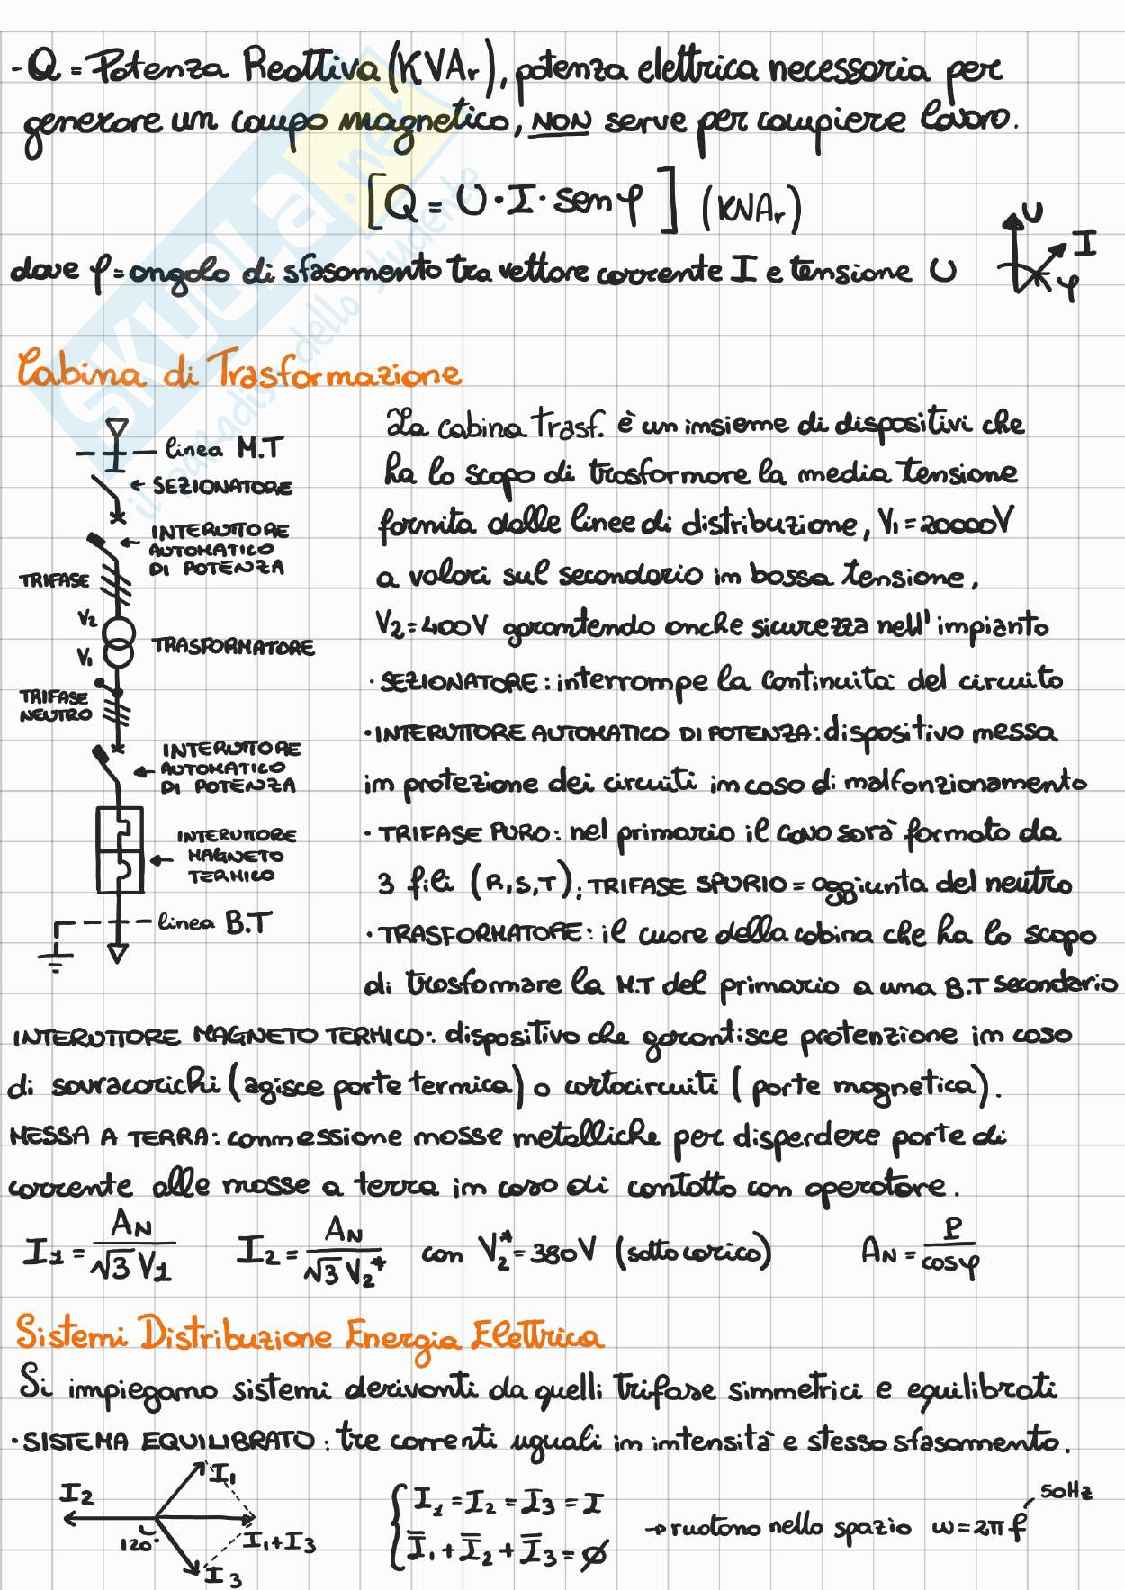 - Q = Potenza Reattiva (KVAr), potenza elettrica necessaria per
generare un campo magnetico, NON serve per compiere lavoro.
[Q = U · I · sen φ] (KNAr)
dove φ = angolo di sfasamento tra vettore corrente I e tensione U
U
I
φ
Cabina di Trasformazione
linea M.T
← SEZIONATORE
INTERUTTORE
← AUTOMATICO
DI POTENZA
TRIFASE
V2
TRASFORMATORE
V1
TRIFASE
NEUTRO
INTERUTTORE
← AUTOMATICO
DI POTENZA
INTERUTTORE
← MAGNETO
TERMICO
linea B.T
La cabina trasf. è un insieme di dispositivi che
ha lo scopo di trasformare la media tensione
fornita dalle linee di distribuzione, V1 = 20000V
a valori sul secondario in bassa tensione,
V2 = 400V garantendo anche sicurezza nell' impianto
· SEZIONATORE : interrompe la continuità del circuito
· INTERUTTORE AUTOMATICO DI POTENZA : dispositivo messa
in protezione dei circuiti in caso di malfonzionamento
· TRIFASE PURO : nel primario il cavo sarà formato da
3 fili (R,S,T); TRIFASE SPURIO = aggiunta del neutro
· TRASFORMATORE : il cuore della cabina che ha lo scopo
di trasformare la M.T del primario a una B.T secondario
INTERUTTORE MAGNETO TERMICO : dispositivo che garantisce protenzione in caso
di sovracarichi (agisce parte termica) o cortocircuiti (parte magnetica).
MESSA A TERRA : connessione masse metalliche per disperdere parte di
corrente alle masse a terra in caso di contatto con operatore.
I1 = AN / √3 V1 I2 = AN / √3 V2* con V2* = 380V (sotto carico) AN = P / cosφ
Sistemi Distribuzione Energia Elettrica
Si impiegano sistemi derivanti da quelli trifase simmetrici e equilibrati
· SISTEMA EQUILIBRATO : tre correnti uguali in intensità e stesso sfasamento.
I1
I2
120°
I1+I3
I3
{ I1 = I2 = I3 = I
I̅1 + I̅2 + I̅3 = ∅
→ ruotano nello spazio ω = 2π f
50Hz
SKUOLA.net
il paradiso dello studente